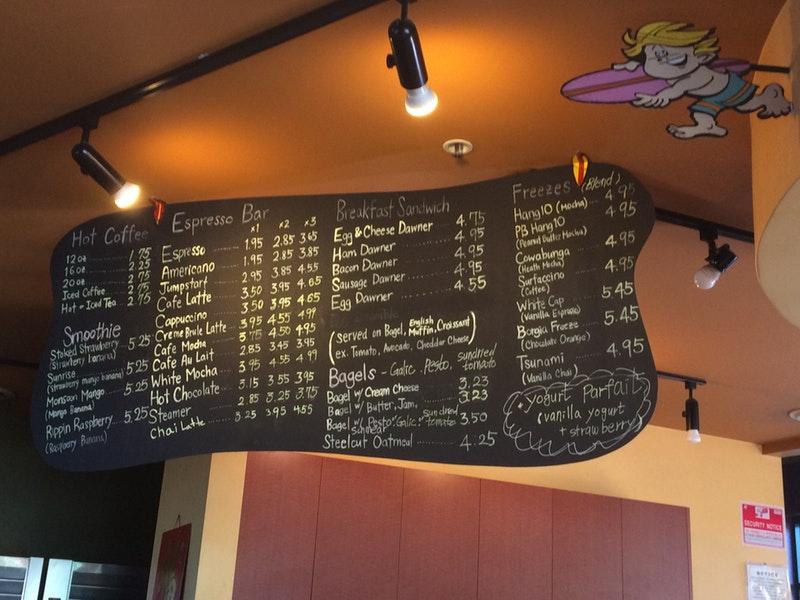 Hot Coffee
12 oz 1.75
16 oz 2.25
20 oz 2.75
Iced Coffee 2.75
Hot or Iced Tea 2.75
Smoothie
Stoked Strawberry 5.25
(Strawberry banana)
Sunrise 5.25
(Strawberry mango banana)
Monsoon Mango 5.25
(Mango Banana)
Rippin Raspberry 5.25
(Raspberry Banana)
Espresso Bar
x1 x2 x3
Espresso 1.95 2.85 3.65
Americano 1.95 2.85 3.85
Jumpstart 2.95 3.85 4.55
Café Latte 3.50 3.95 4.65
Cappuccino 3.50 3.95 4.65
Creme Brule Latte 3.95 4.55 4.99
Cafe Mocha 3.75 4.50 4.95
Cafe Au Lait 2.85 3.45 3.95
White Mocha 3.95 4.55 4.99
Hot Chocolate 3.15 3.55 3.95
Steamer 2.85 3.25 3.75
Chai Latte 3.25 3.95 4.55
Breakfast Sandwich
Egg & Cheese Dawner 4.75
Ham Dawner 4.95
Bacon Dawner 4.95
Sausage Dawner 4.95
Egg Dawner 4.55
(served on Bagel, English Muffin, Croissant)
(ex. Tomato, Avocado, Cheddar Cheese)
Bagels - Galic, Pesto, sundried tomato
Bagel w/ Cream Cheese 3.23
Bagel w/ Butter, Jam, 3.23
Bagel w/ Pesto, Galic, sundried tomato 3.50
schmear
Steelcut Oatmeal 4.25
Freezes (Blend)
Hang 10 (Mocha) 4.95
PB Hang 10 4.95
(Peanut Butter Mocha)
Cowabunga 4.95
(Heath Mocha)
Surfaccino 4.95
(Coffee)
White Cap 5.45
(Vanilla Espresso)
Borgia Freeze 5.45
(Chocolate Orange)
Tsunami 4.95
(Vanilla Chai)
yogurt Parfait
(vanilla yogurt
+ strawberry)
SECURITY NOTICE
NOTICE